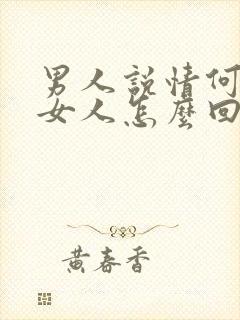 男人説情何
女人怎麼回
黄春香